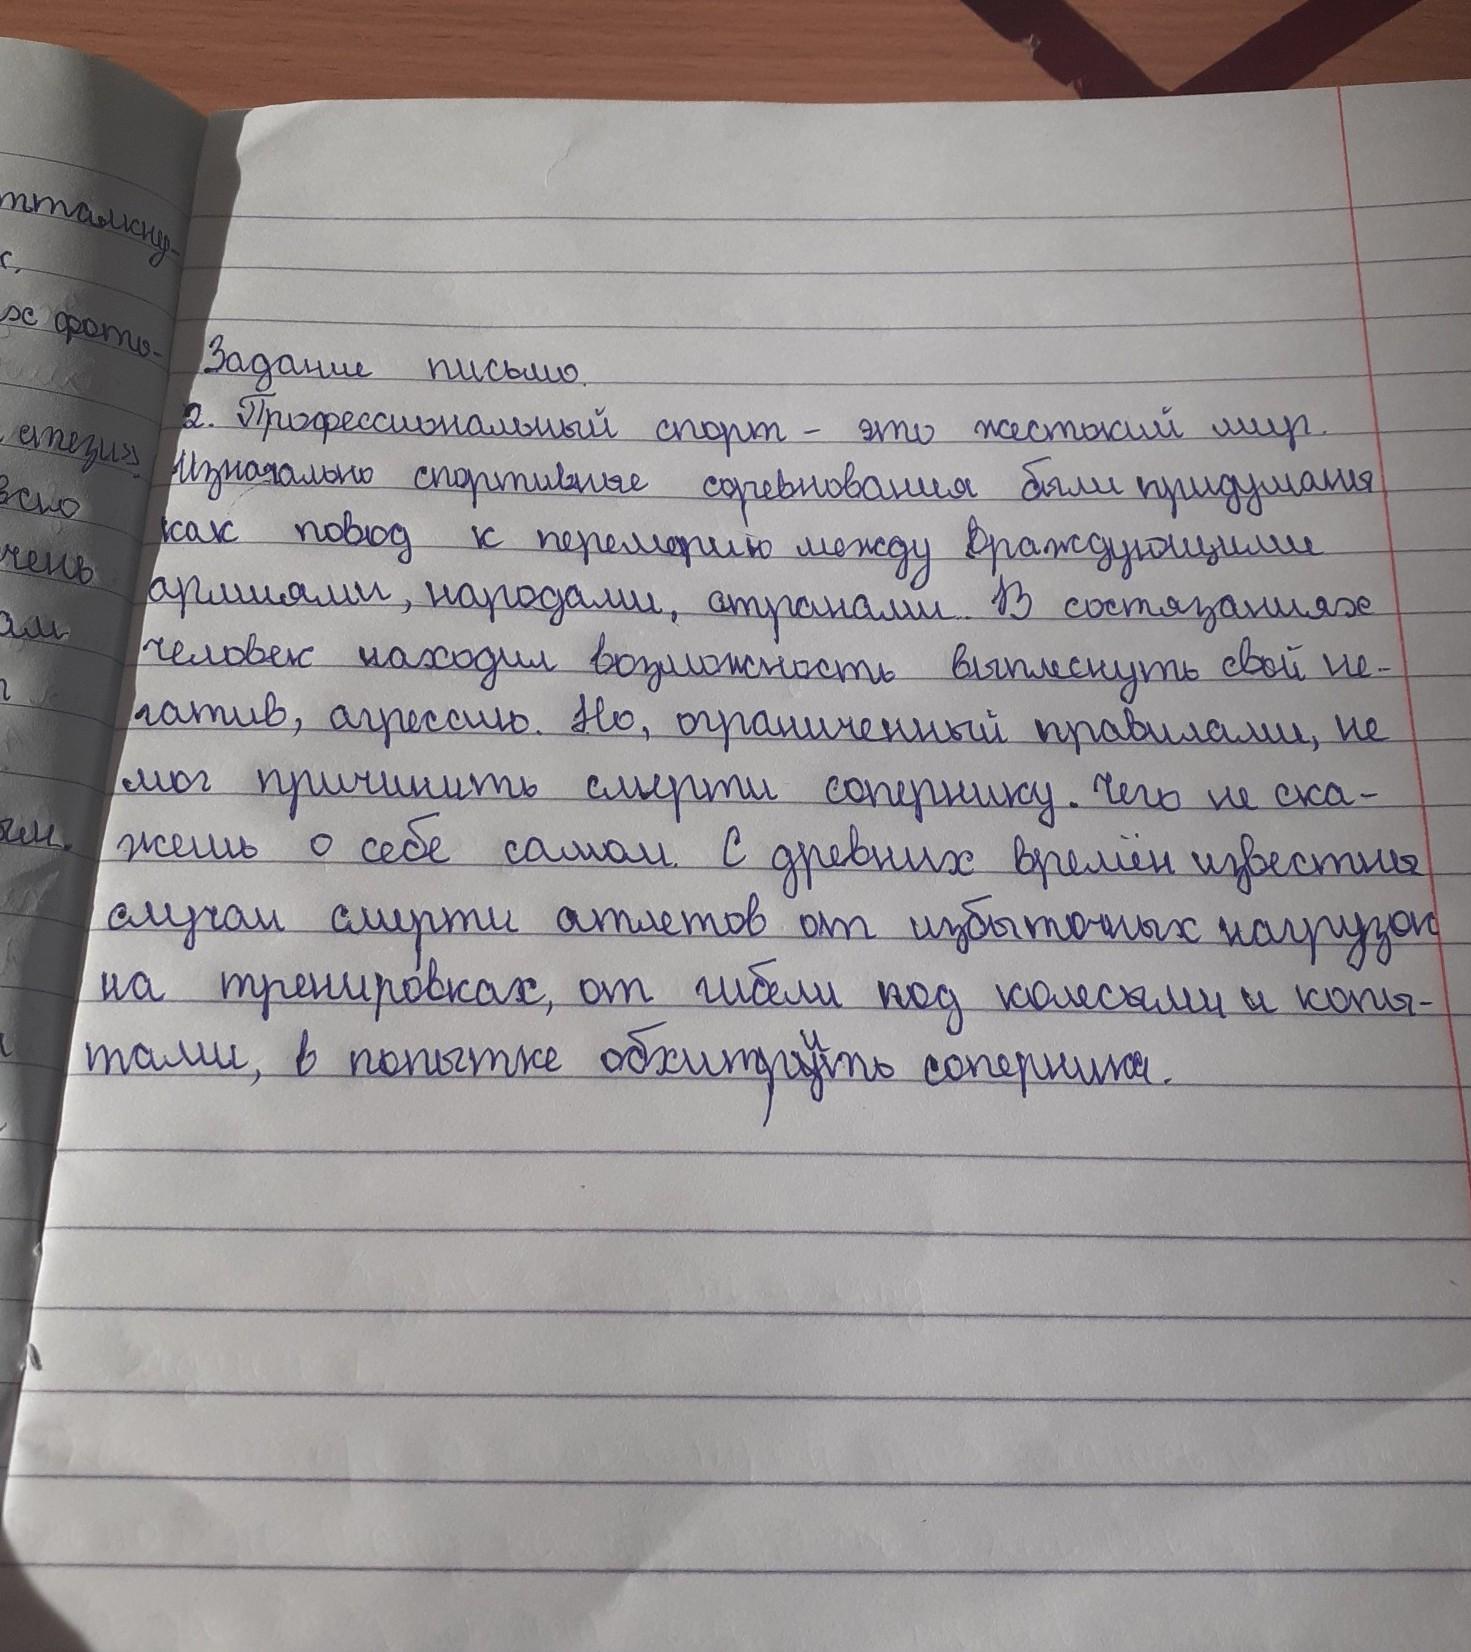 тталкну-
с,
х фото-
Задание письмо.
2. Профессиональный спорт – это жестокий мир.
Изначально спортивные соревнования были придуманы
как повод к перемирию между враждующими
армиями, народами, странами. В состязаниях
человек находил возможность выплеснуть свой не-
гатив, агрессию. Но, ограниченный правилами, не
мог причинить смерти сопернику. Чего не ска-
жешь о себе самом. С древних времён известны
случаи смерти атлетов от избыточных нагрузок
на тренировках, от гибели под колесами и копы-
тами, в попытке обхитрить соперника.